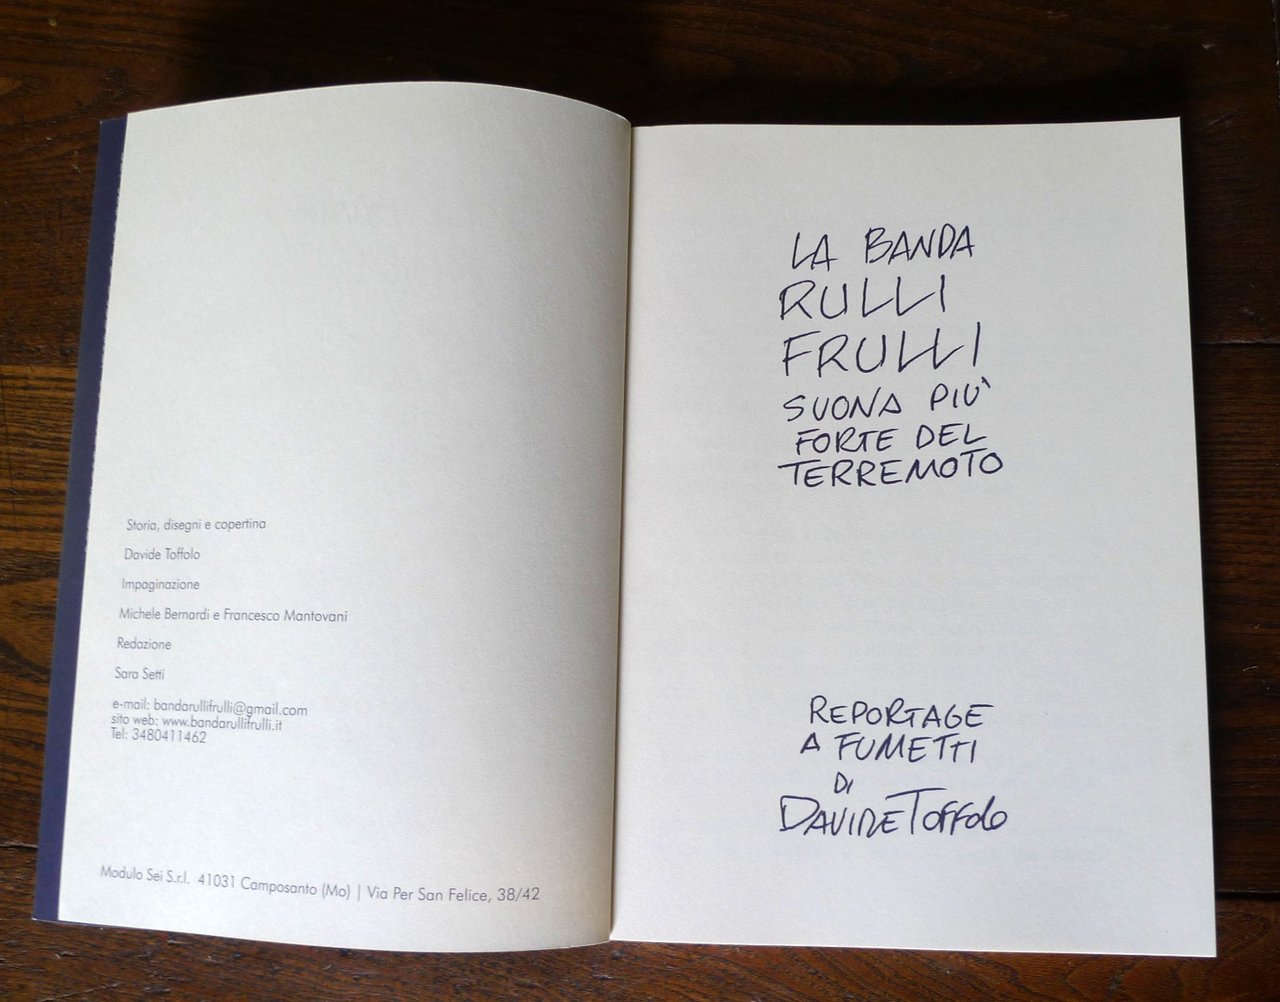 Storia, disegni e copertina
Davide Toffolo
Impaginazione
Michele Bernardi e Francesco Mantovani
Redazione
Sara Setti
e-mail: bandarullifrulli@gmail.com
sito web: www.bandarullifrulli.it
Tel: 3480411462
Modulo Sei S.r.l. 41031 Camposanto (Mo) | Via Per San Felice, 38/42
LA BANDA
RULLI
FRULLI
SUONA PIU'
FORTE DEL
TERREMOTO
REPORTAGE
A FUMETTI
DI
DAVIDE TOFFOLO